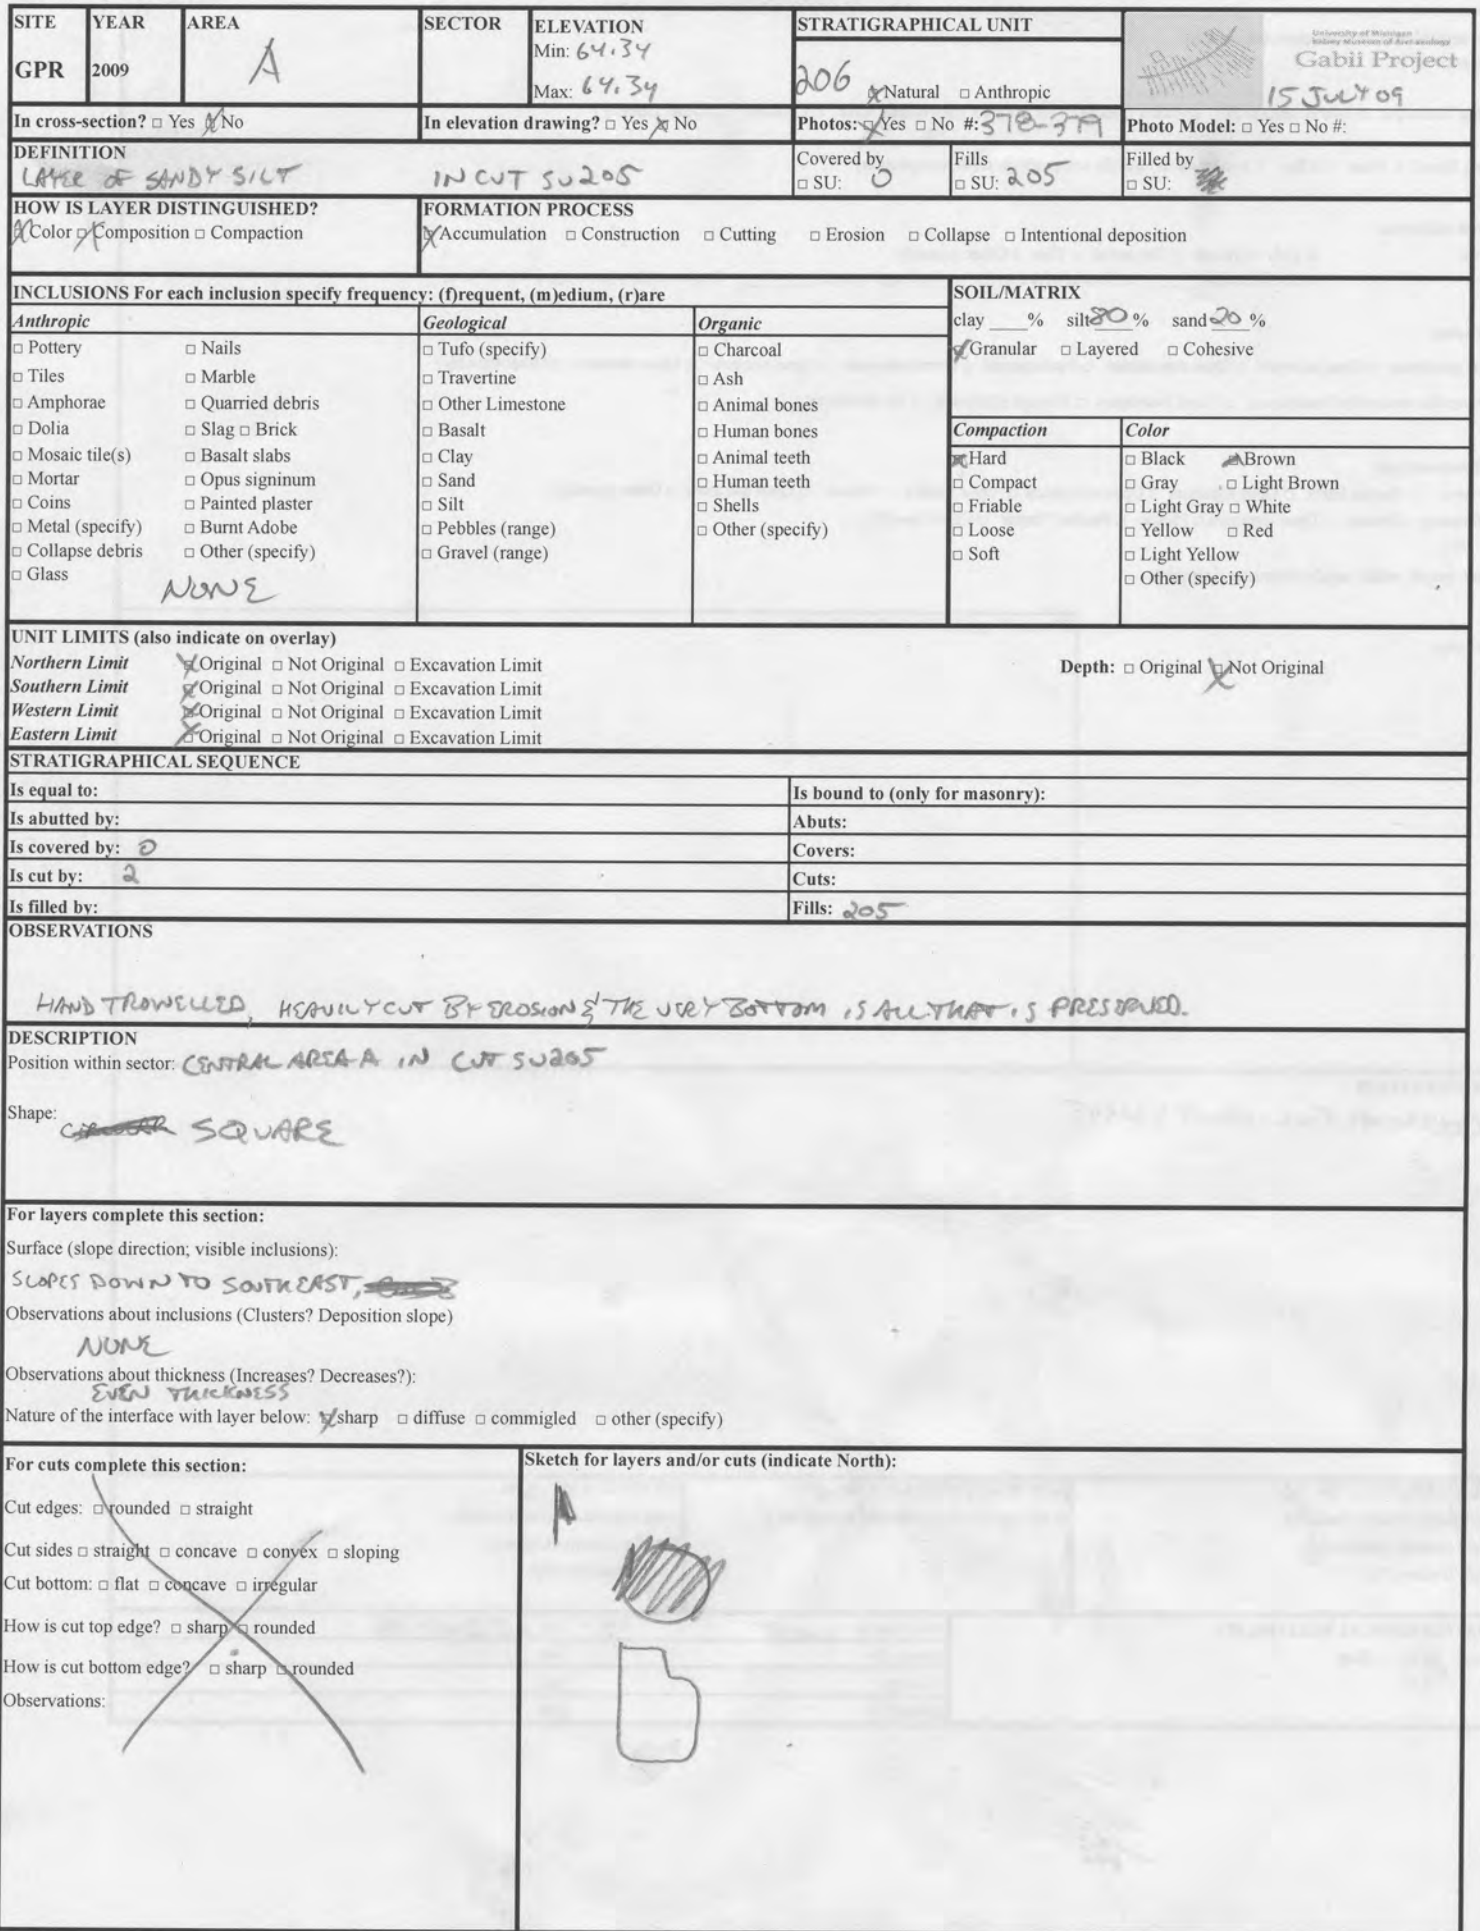 SITE YEAR AREA SECTOR ELEVATION STRATIGRAPHICAL UNIT
GPR 2009 A Min: 64.34 Max: 64.34 206 ☒Natural □ Anthropic
University of Michigan
Kelsey Museum of Archaeology
Gabii Project
15 JULY 09
In cross-section? □ Yes ☒No In elevation drawing? □ Yes ☒ No Photos: ☒Yes □ No #: 378-379 Photo Model: □ Yes □ No #:
DEFINITION
LAYER OF SANDY SILT IN CUT SU205
Covered by □ SU: 0
Fills □ SU: 205
Filled by □ SU:
HOW IS LAYER DISTINGUISHED?
☒Color ☒Composition □ Compaction
FORMATION PROCESS
☒Accumulation □ Construction □ Cutting □ Erosion □ Collapse □ Intentional deposition
INCLUSIONS For each inclusion specify frequency: (f)requent, (m)edium, (r)are
Anthropic
□ Pottery □ Nails
□ Tiles □ Marble
□ Amphorae □ Quarried debris
□ Dolia □ Slag □ Brick
□ Mosaic tile(s) □ Basalt slabs
□ Mortar □ Opus signinum
□ Coins □ Painted plaster
□ Metal (specify) □ Burnt Adobe
□ Collapse debris □ Other (specify)
□ Glass
NONE
Geological
□ Tufo (specify)
□ Travertine
□ Other Limestone
□ Basalt
□ Clay
□ Sand
□ Silt
□ Pebbles (range)
□ Gravel (range)
Organic
□ Charcoal
□ Ash
□ Animal bones
□ Human bones
□ Animal teeth
□ Human teeth
□ Shells
□ Other (specify)
SOIL/MATRIX
clay ____% silt 80 % sand 20 %
☒Granular □ Layered □ Cohesive
Compaction
☒Hard
□ Compact
□ Friable
□ Loose
□ Soft
Color
□ Black ☒Brown
□ Gray □ Light Brown
□ Light Gray □ White
□ Yellow □ Red
□ Light Yellow
□ Other (specify)
UNIT LIMITS (also indicate on overlay)
Northern Limit ☒Original □ Not Original □ Excavation Limit Depth: □ Original ☒Not Original
Southern Limit ☒Original □ Not Original □ Excavation Limit
Western Limit ☒Original □ Not Original □ Excavation Limit
Eastern Limit ☒Original □ Not Original □ Excavation Limit
STRATIGRAPHICAL SEQUENCE
Is equal to: Is bound to (only for masonry):
Is abutted by: Abuts:
Is covered by: 0 Covers:
Is cut by: 2 Cuts:
Is filled by: Fills: 205
OBSERVATIONS
HAND TROWELLED, HEAVILY CUT BY EROSION & THE VERY BOTTOM IS ALL THAT IS PRESERVED.
DESCRIPTION
Position within sector: CENTRAL AREA A IN CUT SU205
Shape: SQUARE
For layers complete this section:
Surface (slope direction; visible inclusions):
SLOPES DOWN TO SOUTHEAST,
Observations about inclusions (Clusters? Deposition slope)
NONE
Observations about thickness (Increases? Decreases?):
EVEN THICKNESS
Nature of the interface with layer below: ☒sharp □ diffuse □ commigled □ other (specify)
For cuts complete this section:
Cut edges: □ rounded □ straight
Cut sides □ straight □ concave □ convex □ sloping
Cut bottom: □ flat □ concave □ irregular
How is cut top edge? □ sharp □ rounded
How is cut bottom edge? □ sharp □ rounded
Observations:
Sketch for layers and/or cuts (indicate North):